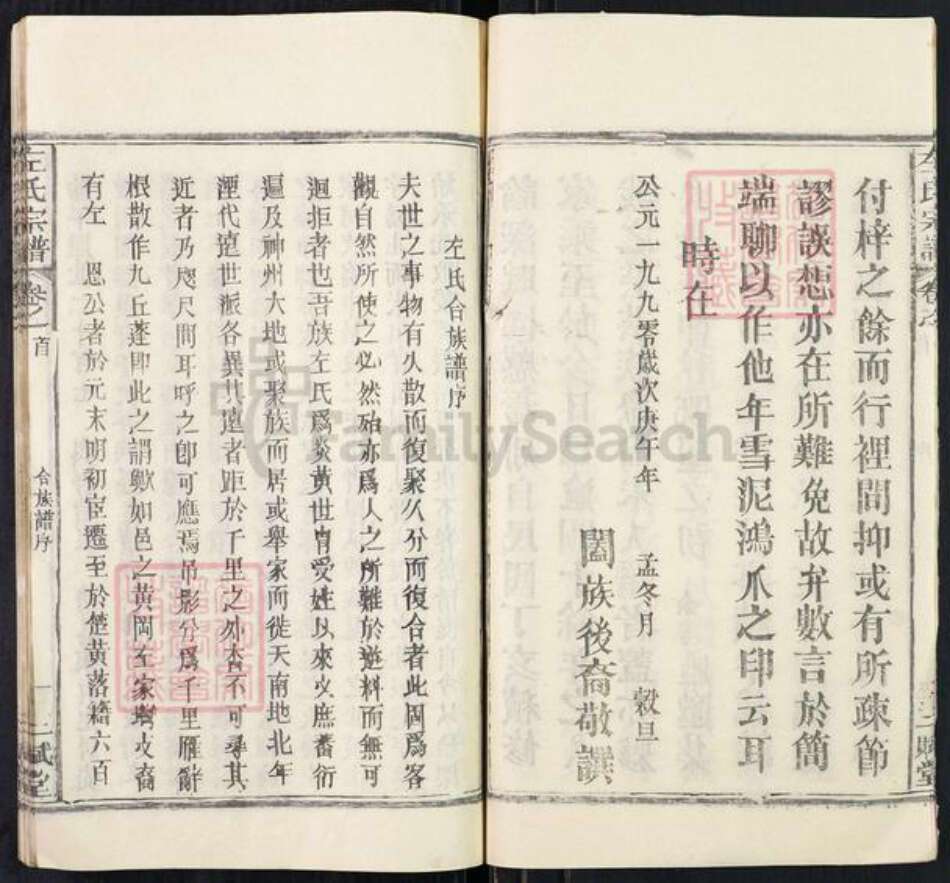 付梓之餘而行裡間抑或有所疎節
謬誤想亦在所難免故弁數言於簡
端聊以作他年雪泥鴻爪之印云耳
時在
公元一九九零歲次庚午年 孟冬月 穀旦
闔族後裔敬譔
左氏合族譜序
夫世之事物有久散而復聚久分而復合者此固爲客
觀自然所使之必然殆亦爲人之所難於逆料而無可
迴拒者也吾族左氏爲炎黃世冑受姓以來攴庶蕃衍
遍及神州大地或聚族而居或舉家而徙天南地北年
湮代遠世派各異其遠者距於千里之外杳不可尋其
近者乃咫尺間耳呼之卽可應焉吊影分爲千里雁辭
根散作九丘蓬卽此之謂歟如邑之黃岡左家塆攴裔
有左 恩公者於元末明初宦遷至於楚黃落籍六百
左氏宗譜 卷之首 合族譜序 三賦堂
FamilySearch